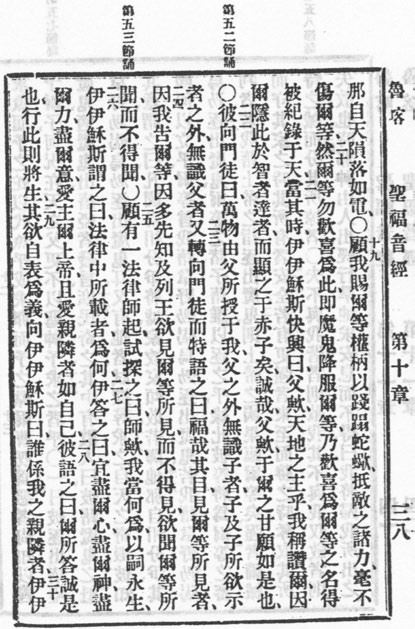 魯客 聖福音經 第十章 三八
第五二節誦
第五三節誦
那自天隕落如電、〇十九顧我賜爾等權柄以踐蹋蛇蠍、抵敵之諸力、毫不
傷爾等、二十然爾等勿歡喜爲此、即魔鬼降服爾等、乃歡喜爲爾等之名得
被紀錄于天、二一當其時伊伊穌斯快興曰、父歟天地之主乎、我稱讚爾、因
爾隱此於智者達者、而顯之于赤子矣、誠哉父歟、于爾之甘願如是也、
〇二二彼向門徒曰、萬物由父所授于我、父之外無識子者、子及子所欲示
者之外、無識父者、二三又轉向門徒而特語之曰、福哉其目見爾等所見者、
二四因我告爾等、因多先知及列王、欲見爾等所見而不得見、欲聞爾等所
聞而不得聞、〇二五顧有一法律師起、試探之曰、師歟、我當何爲、以嗣永生、
二六伊伊穌斯謂之曰、法律中所載者爲何、二七伊答之曰、宜盡爾心、盡爾神、盡
爾力、盡爾意、愛主爾上帝、且愛親隣者如自己、二八彼語之曰、爾所答誠是
也、行此則將生、二九其欲自表爲義、向伊伊穌斯曰、誰係我之親隣者、三十伊伊